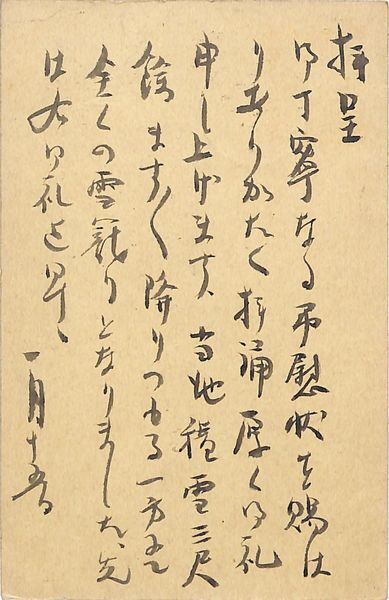 拝呈
御丁寧なる弔慰状を賜は
りありかたく拝誦厚く御礼
申し上げます、当地積雪三尺
餘ますます降りつもる一方にて
全くの雪籠りとなりました、先
は右御礼迄早々
一月十五日